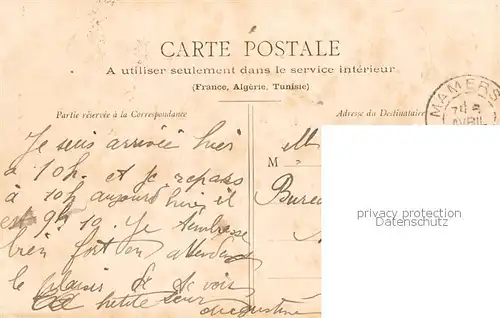 CARTE POSTALE
A utiliser seulement dans le service intérieur
(France, Algérie, Tunisie)
Partie réservée à la Correspondance
Adresse du Destinataire
MAMERS
AVRIL
Je suis arrivée hier
à 10h. et je repars
à 10h aujourd'hui, il
est 9h 10. Je t'embrasse
bien fort en attendant
le plaisir de te voir
ta petite sœur
Augustine
M
M
Bure
privacy protection
Copyright (R) Normal